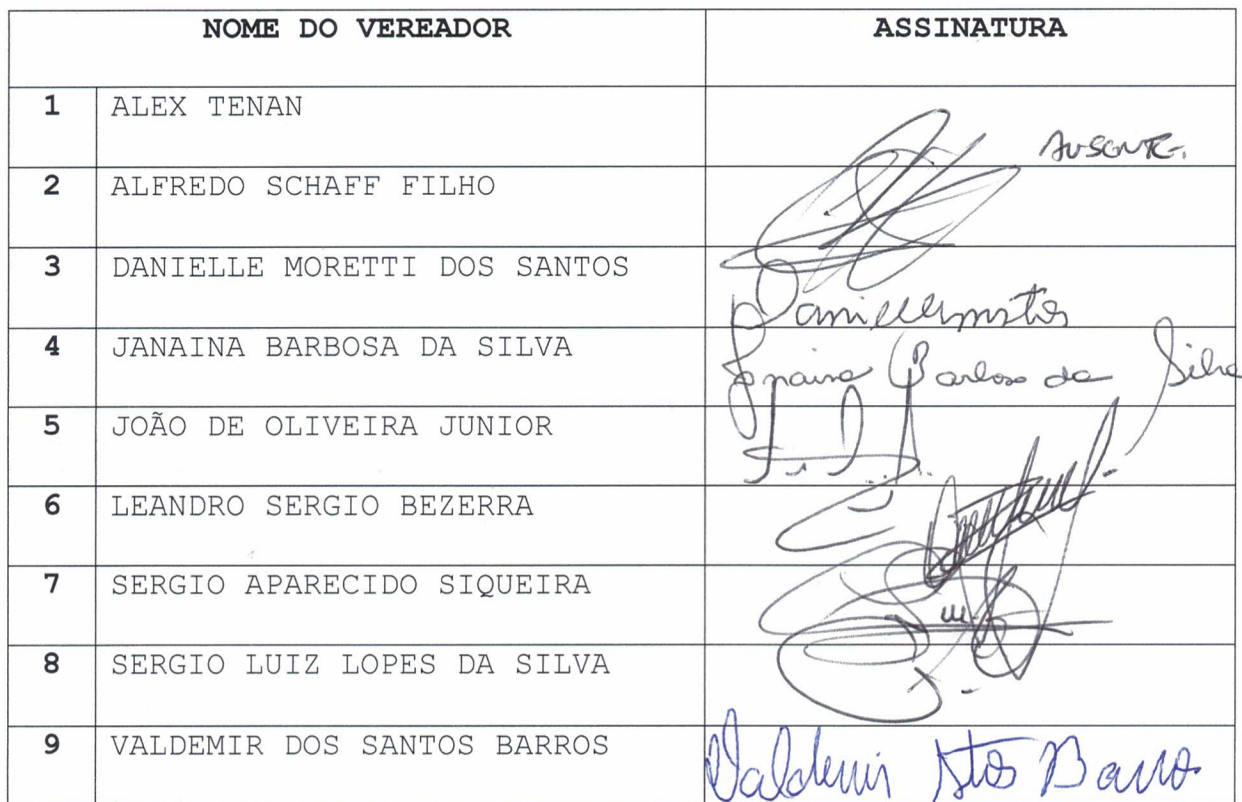 NOME DO VEREADOR ASSINATURA
1 ALEX TENAN AUSENTE.
2 ALFREDO SCHAFF FILHO
3 DANIELLE MORETTI DOS SANTOS
4 JANAINA BARBOSA DA SILVA Janaina Barbosa da Silva
5 JOÃO DE OLIVEIRA JUNIOR
6 LEANDRO SERGIO BEZERRA
7 SERGIO APARECIDO SIQUEIRA
8 SERGIO LUIZ LOPES DA SILVA
9 VALDEMIR DOS SANTOS BARROS Valdemir Stos Barros